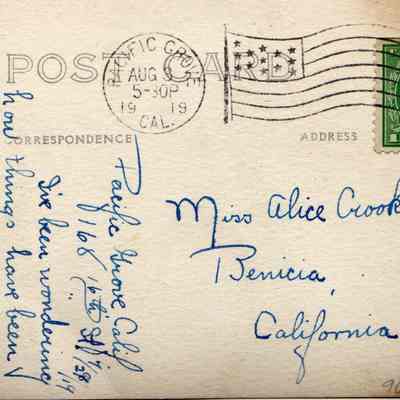 POST CARD
PACIFIC GROVE
AUG 9
5-30P
19 19
CAL.
CORRESPONDENCE
ADDRESS
Miss Alice Crook
Benicia,
California
Pacific Grove Calif
166 16th St
I've been wondering
how things have been